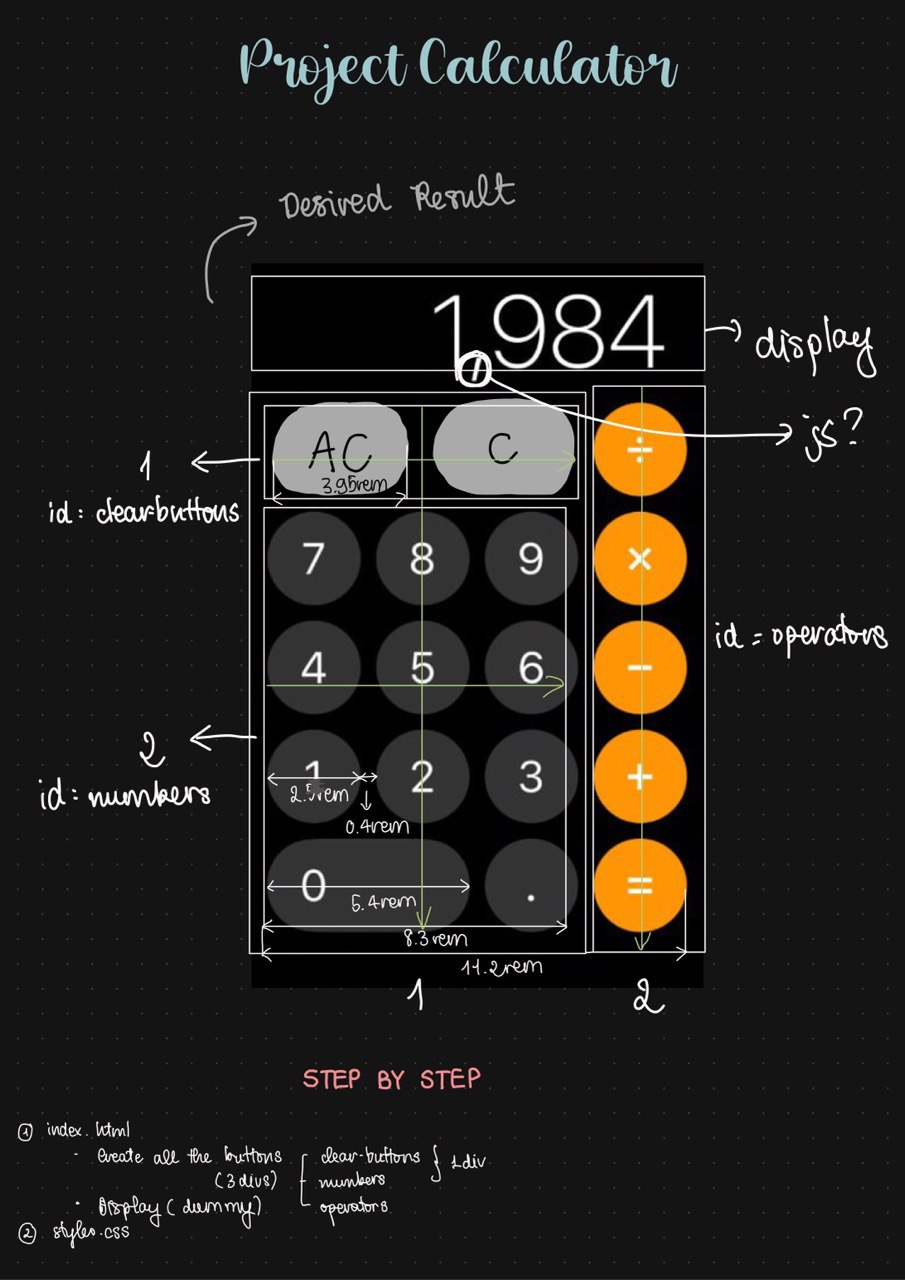 Project Calculator
Desired Result
1,984
display
js?
AC
C
÷
3.95rem
1
id: clearbuttons
7 8 9 ×
4 5 6 −
id = operators
2
id: numbers
1 2 3 +
2.5rem
0.4rem
0 . =
5.4rem
8.3rem
11.2rem
1 2
STEP BY STEP
① index.html
· Create all the buttons
(3 divs)
clear-buttons
numbers
operators
1 div
· Display (dummy)
② styles.css